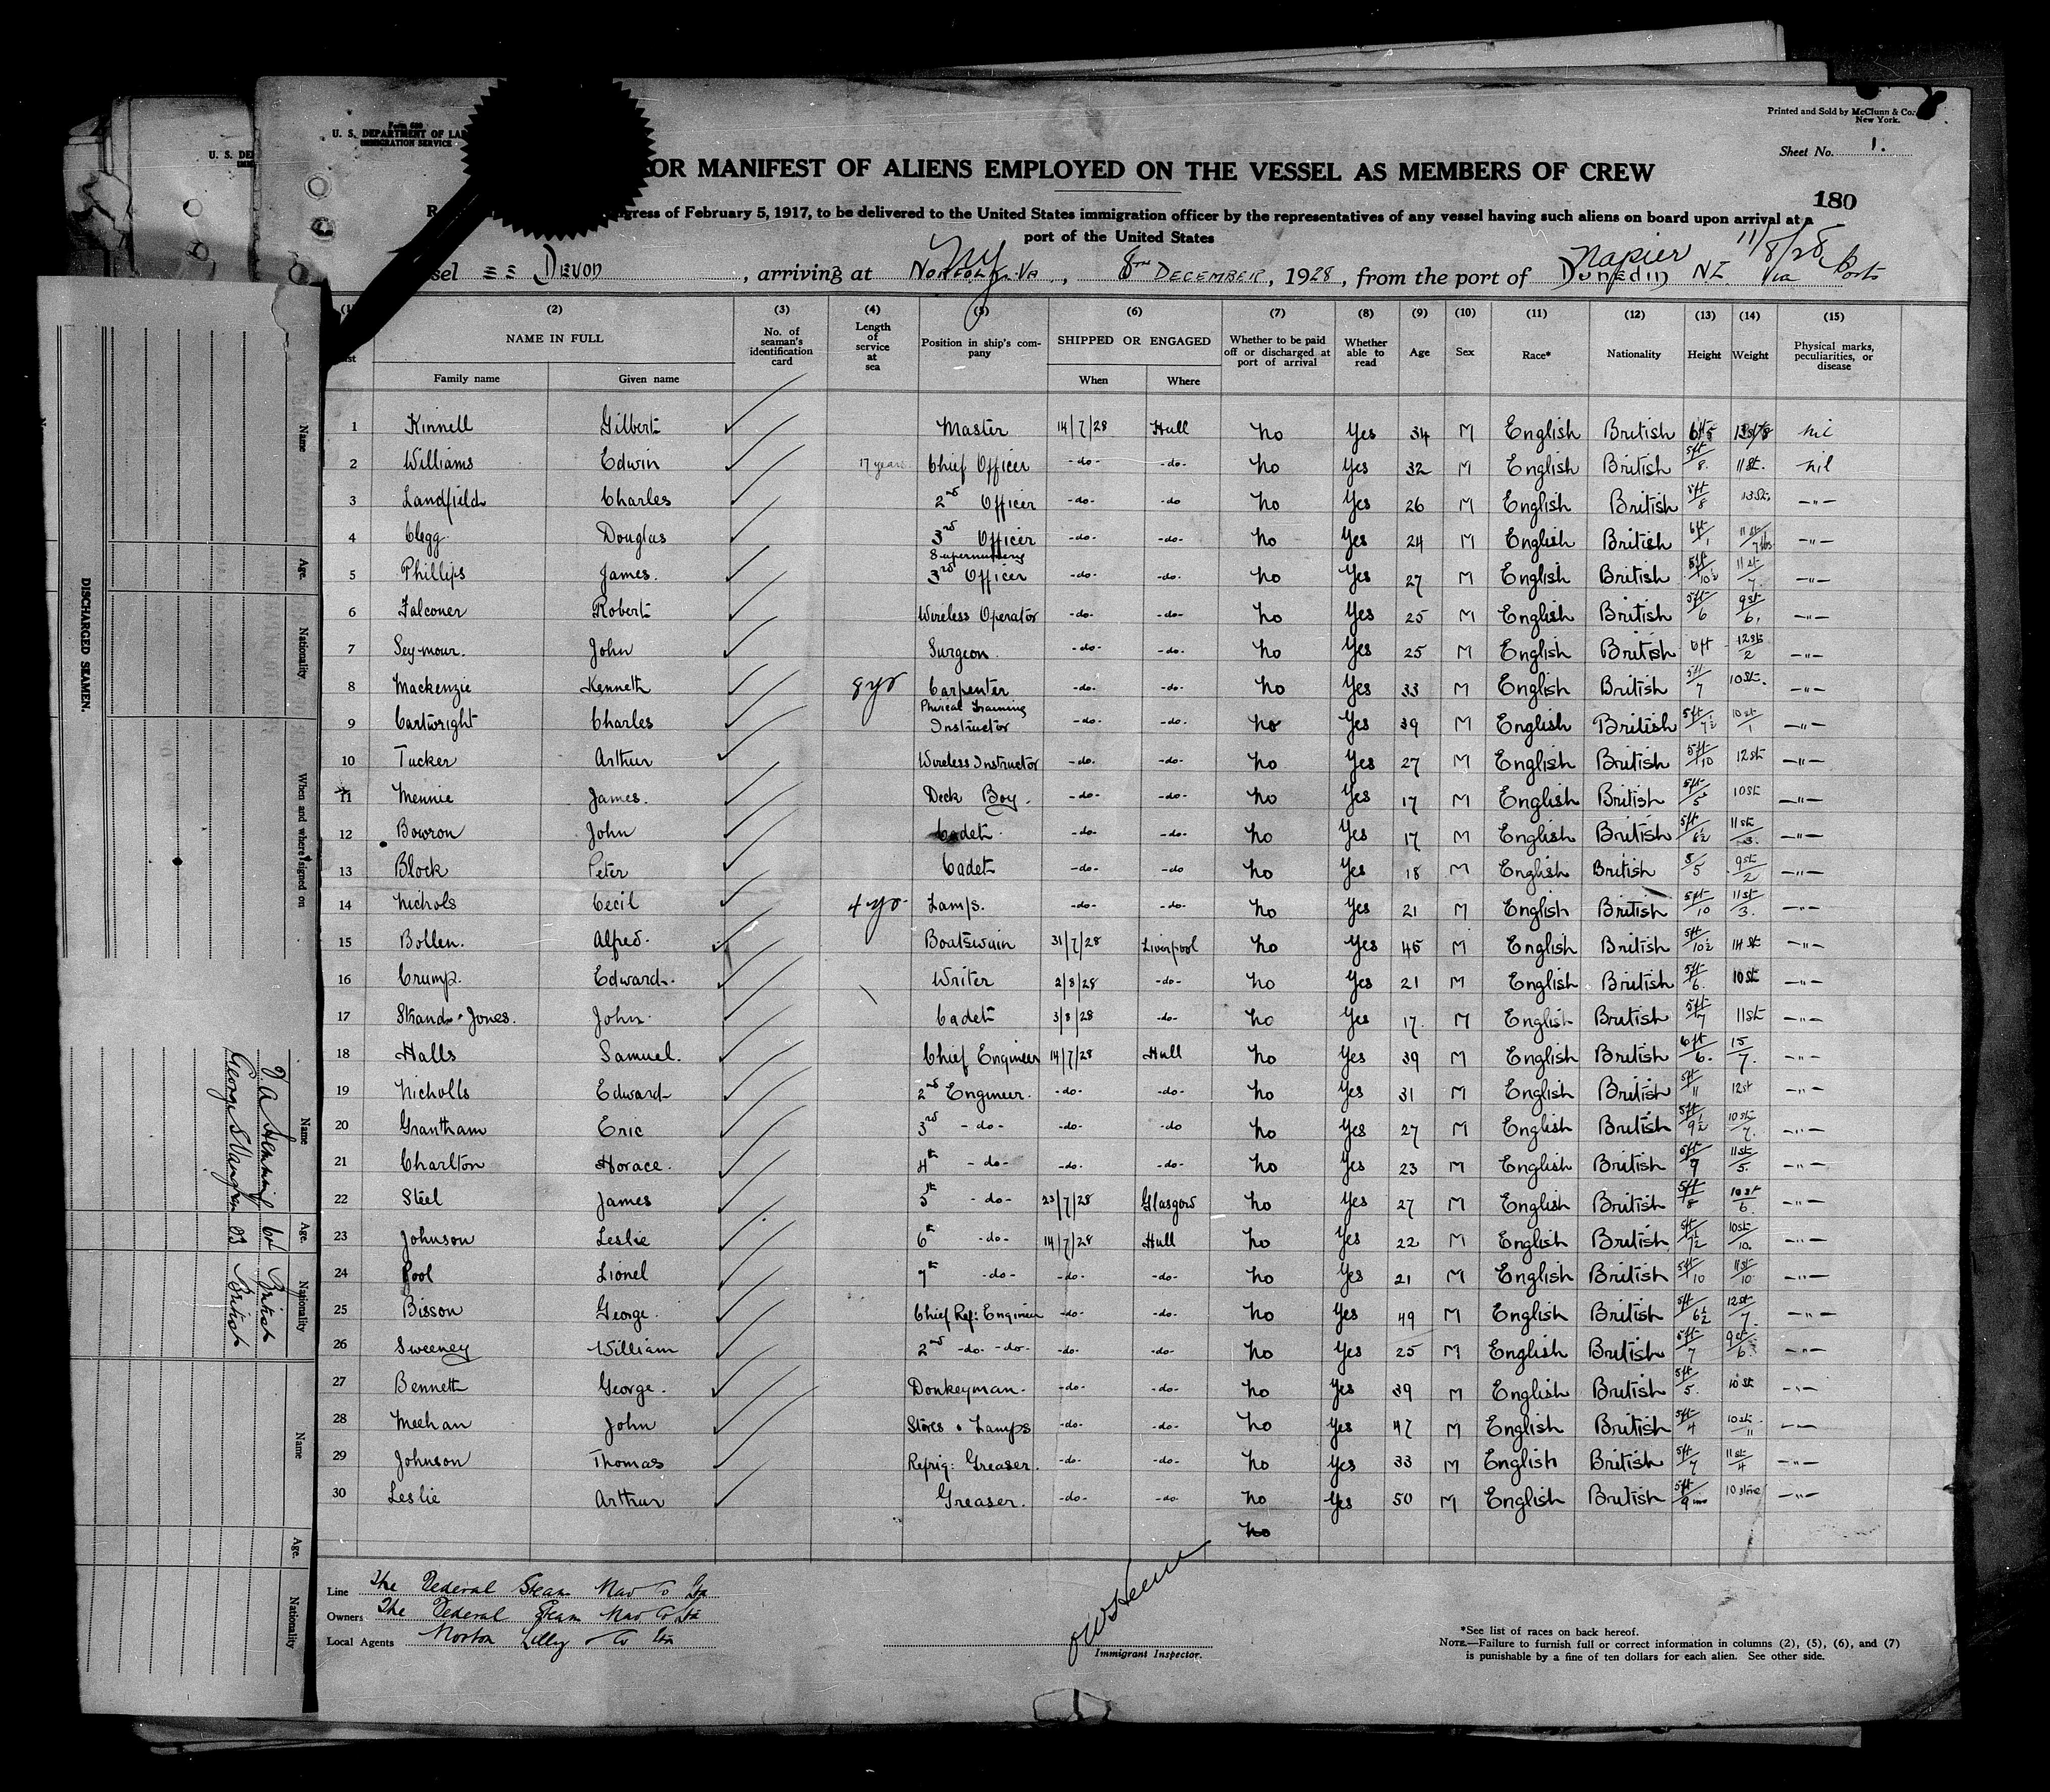 Printed and Sold by McClunn & Co.
New York.
8
Form 680
U. S. DEPARTMENT OF LA
IMMIGRATION SERVICE
Sheet No. 1.
OR MANIFEST OF ALIENS EMPLOYED ON THE VESSEL AS MEMBERS OF CREW
180
ngress of February 5, 1917, to be delivered to the United States immigration officer by the representatives of any vessel having such aliens on board upon arrival at a
port of the United States
NY Napier 11/8/28
sel SS Devon, arriving at Norfolk Va, 8 DECEMBER, 1928, from the port of Dunedin NZ. Via Ports
(2) (3) (4) (5) (6) (7) (8) (9) (10) (11) (12) (13) (14) (15)
NAME IN FULL No. of seaman's identification card Length of service at sea Position in ship's company SHIPPED OR ENGAGED Whether to be paid off or discharged at port of arrival Whether able to read Age Sex Race* Nationality Height Weight Physical marks, peculiarities, or disease
Family name Given name When Where
1 Kinnell Gilbert Master 14/7/28 Hull No Yes 34 M English British nil
2 Williams Edwin 17 years Chief Officer -do- -do- No Yes 32 M English British 5ft/8 11st. nil
3 Landfield Charles 2nd Officer -do- -do No Yes 26 M English British 5ft/8 13st. -"-
4 Clegg Douglas 3rd Officer -do- -do- No Yes 24 M English British 6ft/1 11st/7lbs -"-
5 Phillips James. Supernumerary 3rd Officer -do- -do- No Yes 27 M English British 5ft/10½ 11st/7. -"-
6 Falconer Robert Wireless Operator -do- -do- No Yes 25 M English British 5ft/6 9st/6. -"-
7 Seymour. John Surgeon -do- -do- No Yes 25 M English British 6ft 12st/2 -"-
8 Mackenzie Kenneth 9 yr Carpenter -do- -do- No Yes 33 M English British 5ft/7 10st. -"-
9 Cartwright Charles Phisical Training Instructor -do- -do- No Yes 39 M English British 5ft/7½ 10st/1 -"-
10 Tucker Arthur Wireless Instructor -do- -do- No Yes 27 M English British 5ft/10 12st -"-
11 Mennie James. Deck Boy. -do- -do- No Yes 17 M English British 5ft/5 10st -"-
12 Bowron John Cadet -do- -do- No Yes 17 M English British 5ft/8½ 11st/3. -"-
13 Block Peter Cadet -do- -do No Yes 18 M English British 5/5 9st/2 -"-
14 Nichols Cecil 4 yr Lamps. -do- -do- No Yes 21 M English British 5ft/10 11st/3. -"-
15 Bollen. Alfred. Boatswain 31/7/28 Liverpool No Yes 45 M English British 5ft/10½ 14st -"-
16 Crump. Edward. Writer 2/8/28 -do- No Yes 21 M English British 5ft/6. 10st -"-
17 Strand-Jones. John Cadet 3/8/28 -do- No Yes 17. M English British 5ft/7 11st -"-
18 Halls Samuel. Chief Engineer 14/7/28 Hull No Yes 39 M English British 6ft/6. 15/7. -"-
19 Nicholls Edward 2nd Engineer. -do- -do- No Yes 31 M English British 5ft/11 12st -"-
20 Grantham Eric 3rd -do- -do- -do No Yes 27 M English British 5ft/9½ 10st/7. -"-
21 Charlton Horace. 4th -do- -do- -do- No Yes 23 M English British 5ft/7 11st/5. -"-
22 Steel James 5th -do- 23/7/28 Glasgow No Yes 27 M English British 5ft/8 10st/6. -"-
23 Johnson Leslie 6th -do- 14/7/28 Hull No Yes 22 M English British 5ft/7½ 10st/10. -"-
24 Pool Lionel 7th -do- -do- -do- No Yes 21 M English British 5ft/10 11st/10 -"-
25 Bisson George Chief Ref: Engineer -do- -do- No Yes 49 M English British 5ft/6½ 12st/7. -"-
26 Sweeney William 2nd -do- -do- -do- -do- No Yes 25 M English British 5ft/7 9st/6. -"-
27 Bennett George. Donkeyman. -do- -do- No Yes 39 M English British 5ft/5. 10st -"-
28 Meehan John Stores & Lamps -do- -do- No Yes 47 M English British 5ft/4 10st/11 -"-
29 Johnson Thomas Refrig: Greaser. -do- -do- No Yes 33 M English British 5ft/7 11st/4 -"-
30 Leslie Arthur Greaser. -do- -do- No Yes 50 M English British 5ft/9 ins 10 stone -"-
No
Line The Federal Steam Nav Co Ltd
Owners The Federal Steam Nav Co Ltd
Local Agents Norton Lilly & Co
Immigrant Inspector.
*See list of races on back hereof.
NOTE.—Failure to furnish full or correct information in columns (2), (5), (6), and (7)
is punishable by a fine of ten dollars for each alien. See other side.
U. S. DE
DISCHARGED SEAMEN.
Name Age. Nationality When and where signed on
Name Age. Nationality
British
George British
Name Age. Nationality